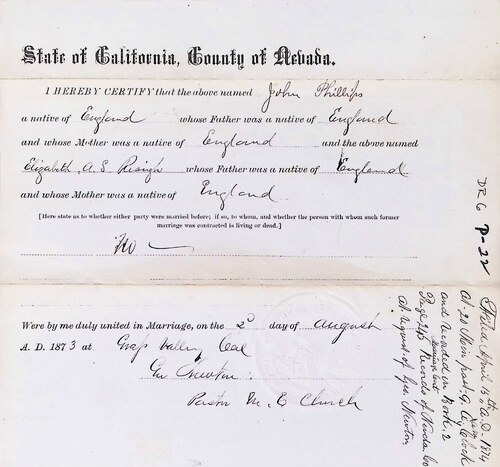 State of California, County of Nevada.
I HEREBY CERTIFY that the above named John Phillips
a native of England whose Father was a native of England
and whose Mother was a native of England and the above named
Elizabeth A. S. whose Father was a native of England
and whose Mother was a native of England
[Here state as to whether either party were married before; if so, to whom, and whether the person with whom such former
marriage was contracted is living or dead.]
No
Were by me duly united in Marriage, on the 2d day of August
A. D. 1873 at Grass Valley Cal
Geo Newton
Pastor M. E Church
DR 6 P-22
Filed April 15th A.D. 1874
at 22 Min past 9 O'clock
and recorded in Book 2
Page Records of Nevada Co
at request of Geo. Newton